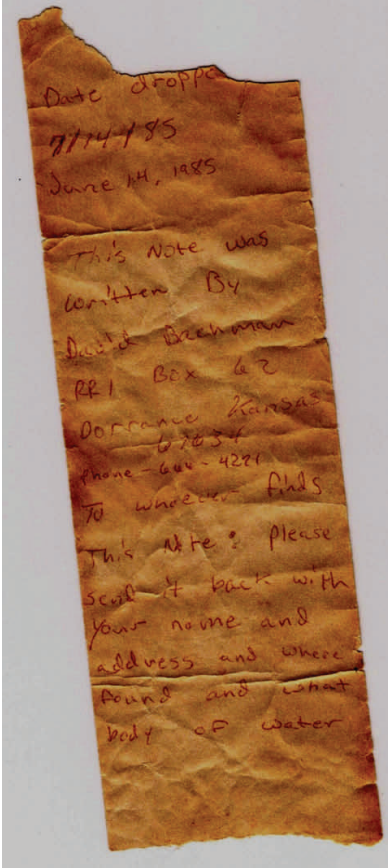 Date droppe
7/14/85
June 14, 1985
This Note was
written By
David Bachman
RR1 Box 62
Dorrance Kansas
67634
phone - 666 - 4221
To whoever finds
This Note: please
send it back with
your name and
address and where
found and what
body of water